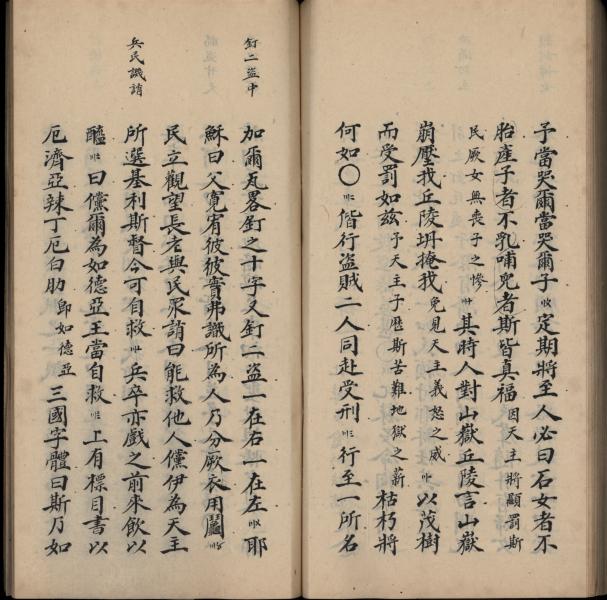 子當哭爾當哭爾子定期將至人必曰石女者不
胎產子者不乳哺兒者斯皆真福因天主將顯罰斯
民厥女無喪子之慘卅其時人對山嶽丘陵言山嶽
崩壓我丘陵坍掩我免見天主義怒之威以茂樹
而受罰如茲予天主子歷斯苦難地獄之薪枯朽將
何如〇偕行盜賊二人同赴受刑行至一所名
釘二盜中
加爾瓦畧釘之十字又釘二盜一在右一在左耶
穌曰父寬宥彼彼實弗識所為人乃分厥衣用鬮
民立觀望長者與民眾誚曰能救他人儻伊為天主
兵民譏誚
所選基利斯督今可自救兵卒亦戲之前來飲以
醯曰儻爾為如德亞王當自救上有標目書以
厄濟亞辣丁厄白肋即如德亞三國字體曰斯乃如